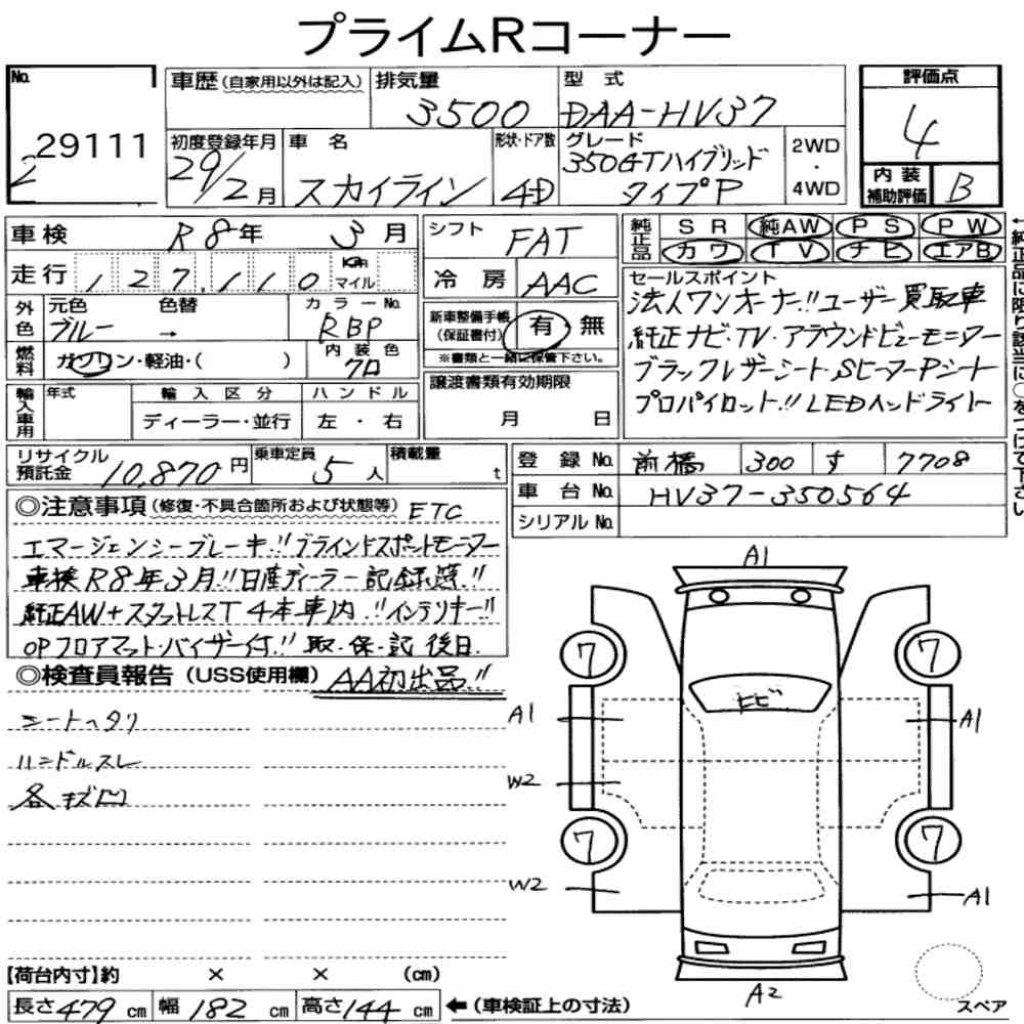 プライムRコーナー
No. 29111
2
車歴(自家用以外は記入)
排気量 3500
型式 DAA-HV37
評価点 4
初度登録年月 29/2月
車名 スカイライン
形状・ドア数 4D
グレード 350GTハイブリッド タイプP
2WD・4WD
内装補助評価 B
車検 R8年 3月
走行 127,110 Km マイル
シフト FAT
冷房 AAC
純正品 SR 純AW PS PW
カワ TV ナビ エアB
←純正品に限り該当に○をつけて下さい
外色 元色 ブルー 色替 →
カラーNo. RBP
燃料 ガソリン・軽油・( )
内装色 クロ
新車整備手帳(保証書付) 有・無
※書類と一緒に保管下さい。
セールスポイント
法人ワンオーナー!!ユーザー買取車
純正ナビ・TV・アラウンドビューモニター
ブラックレザーシート・SヒーターPシート
プロパイロット!!LEDヘッドライト
輸入車用 年式 輸入区分 ハンドル
ディーラー・並行 左・右
譲渡書類有効期限
月 日
リサイクル預託金 10,870円
乗車定員 5人
積載量 t
登録No. 前橋 300 す 7708
車台No. HV37-350564
シリアルNo.
◎注意事項(修復・不具合箇所および状態等) ETC
エマージェンシーブレーキ!!ブラインドスポットモニター
車検R8年3月!!日産ディーラー記録簿!!
純正AW+スタットレスT 4本車内!!インテリキー!!
OPフロアマット・バイザー付!!取・保・記 後日
◎検査員報告(USS使用欄) AA初出品!!
シートヘタリ
ハンドルスレ
各キズ凹
A1
7 7
トビ
A1 A1
W2
7 7
W2 A1
A2
スペア
【荷台内寸】約 × × (cm)
長さ479cm 幅182cm 高さ144cm ←(車検証上の寸法)